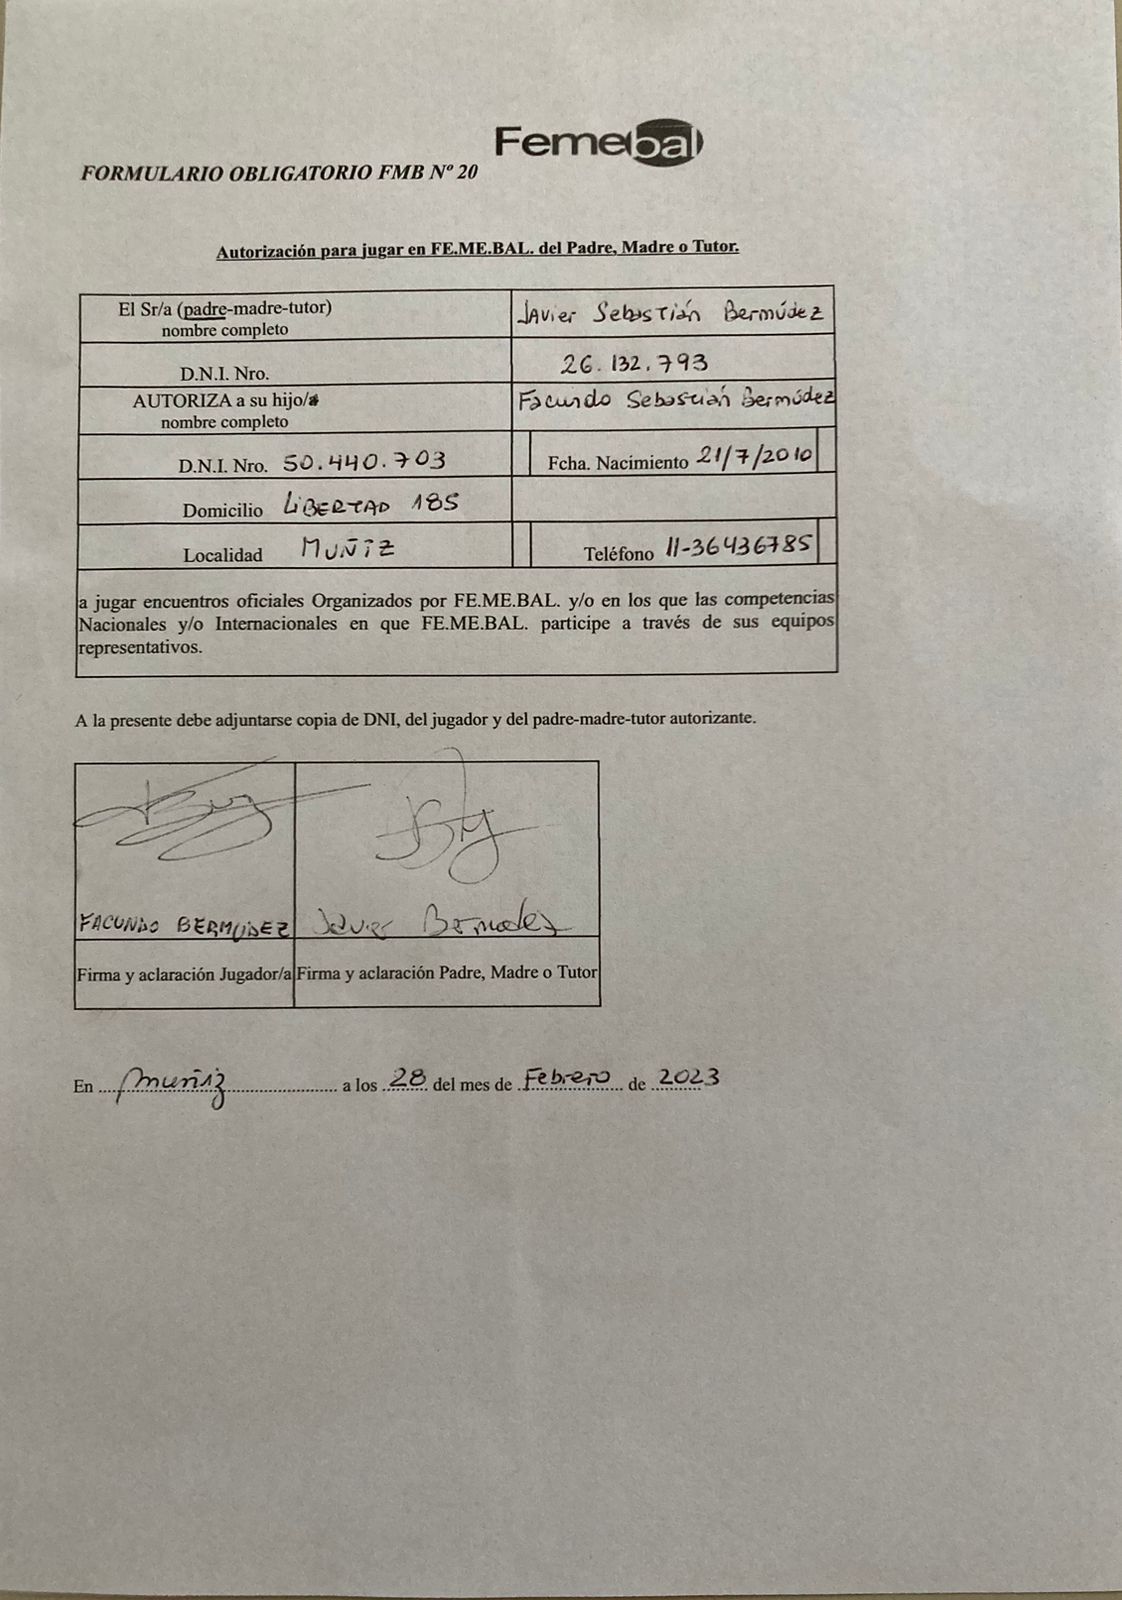 Femebal
FORMULARIO OBLIGATORIO FMB Nº 20
Autorización para jugar en FE.ME.BAL. del Padre, Madre o Tutor.
El Sr/a (padre-madre-tutor)
nombre completo
Javier Sebastián Bermúdez
D.N.I. Nro.
26.132.793
AUTORIZA a su hijo/a
nombre completo
Facundo Sebastián Bermúdez
D.N.I. Nro. 50.440.703
Fcha. Nacimiento 21/7/2010
Domicilio LIBERTAD 185
Localidad MUÑIZ
Teléfono 11-36436785
a jugar encuentros oficiales Organizados por FE.ME.BAL. y/o en los que las competencias
Nacionales y/o Internacionales en que FE.ME.BAL. participe a través de sus equipos
representativos.
A la presente debe adjuntarse copia de DNI, del jugador y del padre-madre-tutor autorizante.
FACUNDO BERMUDEZ
Javier Bermudez
Firma y aclaración Jugador/a
Firma y aclaración Padre, Madre o Tutor
En Muñiz a los 28 del mes de Febrero de 2023